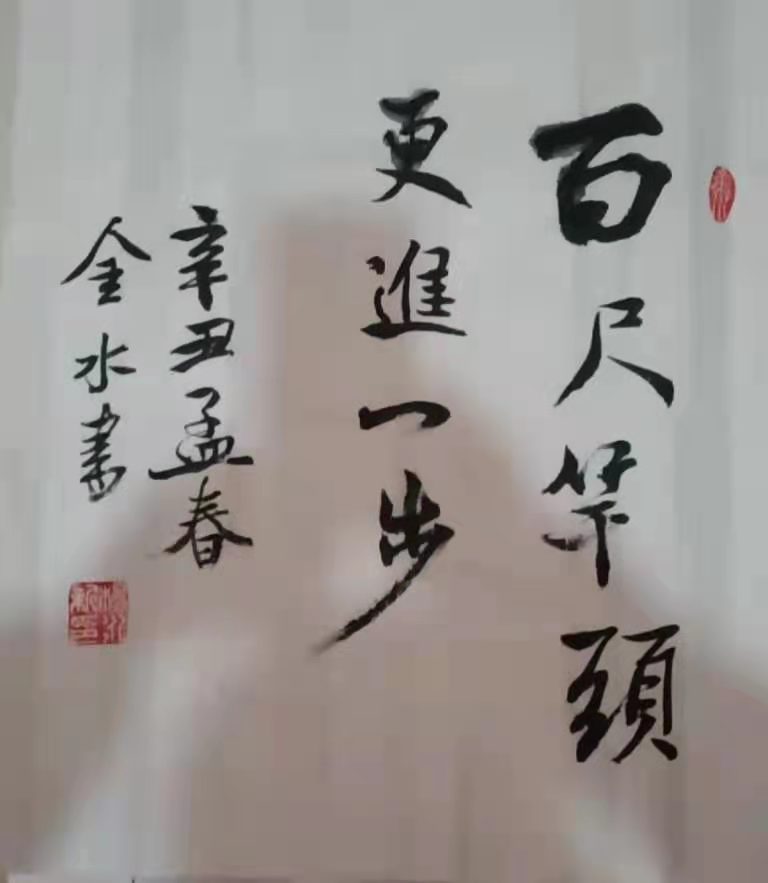 百尺竿頭
更進一步
辛丑孟春
金水書